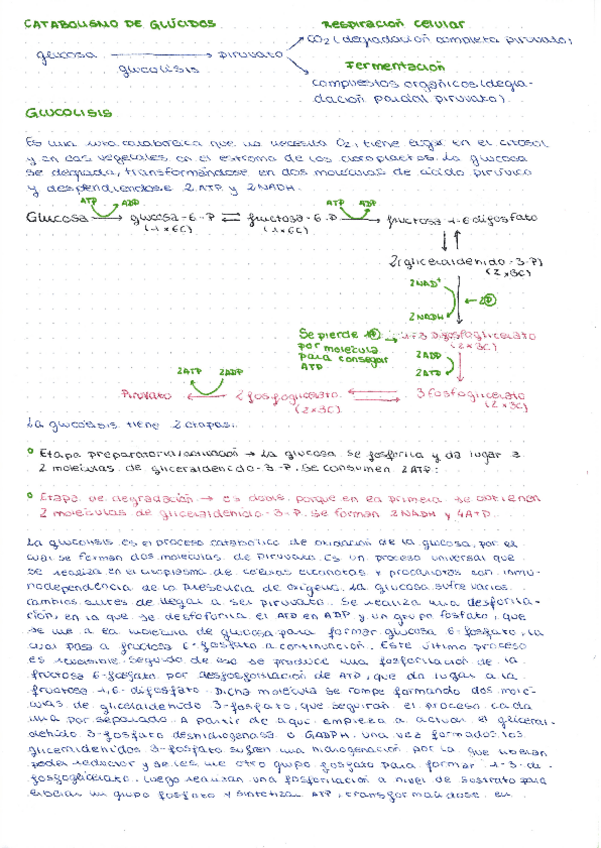 CATABOLISMO DE GLÚCIDOS
Respiración celular
glucosa → piruvato
glucolisis
CO2 (degradación completa piruvato)
Fermentación
compuestos orgánicos (degra-
dación parcial piruvato)
GLUCOLISIS
Es una ruta catabólica que no necesita O2, tiene lugar en el citosol
y en las vegetales en el estroma de los cloroplastos. La glucosa
se degrada, transformándose en dos moléculas de ácido pirúvico
y desprendiéndose 2 ATP y 2 NADH.
ATP ADP ATP ADP
Glucosa → glucosa-6-P ⇌ fructosa-6-P → fructosa 1-6 difosfato
(1x6C) (1x6C)
2(gliceraldehido-3-P)
(2x3C)
2NAD+
2P
2NADH
Se pierde 1P
por molécula
para conseguir
ATP
1-3 difosfoglicerato
(2x3C)
2ADP
2ATP
2ATP 2ADP
Piruvato ← 2 fosfoglicerato ⇌ 3 fosfoglicerato
(2x3C) (2x3C)
La glucolisis tiene 2 etapas:
Etapa preparatoria/activación → La glucosa se fosforila y da lugar a
2 moléculas de gliceraldehido-3-P. Se consumen 2 ATP.
Etapa de degradación → es doble porque en la primera se obtienen
2 moléculas de gliceraldehido-3-P. Se forman 2 NADH y 4 ATP.
La glucolisis es el proceso catabólico de oxidación de la glucosa, por el
cual se forman dos moléculas de piruvato. Es un proceso universal que
se realiza en el citoplasma de células eucariotas y procariotas con
de la presencia de oxígeno. La glucosa sufre varios
cambios antes de llegar a ser piruvato. Se realiza una
en la que se desfosforila el ATP en ADP y un grupo fosfato, que
se une a la molécula de glucosa para formar glucosa 6-fosfato, la
cual pasa a fructosa 6-fosfato a continuación. Este último proceso
es reversible. Seguido de eso se produce una fosforilación de la
fructosa 6-fosfato por desfosforilación de ATP, que da lugar a la
fructosa 1,6-difosfato. Dicha molécula se rompe formando dos molé-
culas de gliceraldehido 3-fosfato, que seguirán el proceso cada
una por separado. A partir de aquí empieza a actuar el gliceral-
dehido 3-fosfato deshidrogenasa o GADPH. Una vez formados los
3-fosfato sufren una hidrogenación por la que
poder reductor y se les une otro grupo fosfato para formar 1-3-di-
fosfoglicerato. Luego realizan una fosforilación a nivel de sustrato para
un grupo fosfato y sintetizar ATP, transformándose en